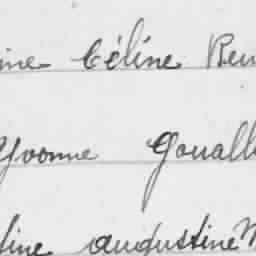 ine Céline Ren
Yvonne Gouall
tine augustine M